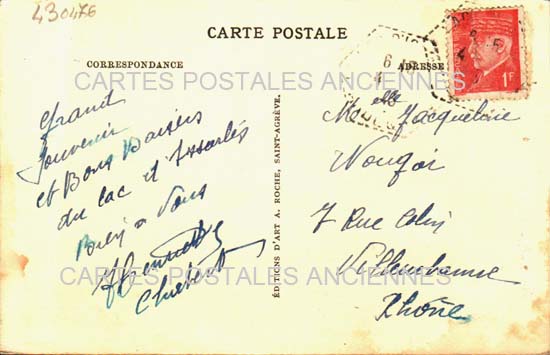 430476
CARTE POSTALE
CORRESPONDANCE
ADRESSE
1F
CARTES POSTALES ANCIENNES
Grand
Souvenir
et Bons Baisers
du lac d'Issarlès
à Vous
ÉDITIONS D'ART A. ROCHE, SAINT-AGRÈVE.
Melle Jacqueline
7 Rue Colin
Villeurbanne
Rhône
CARTES POSTALES ANCIENNES